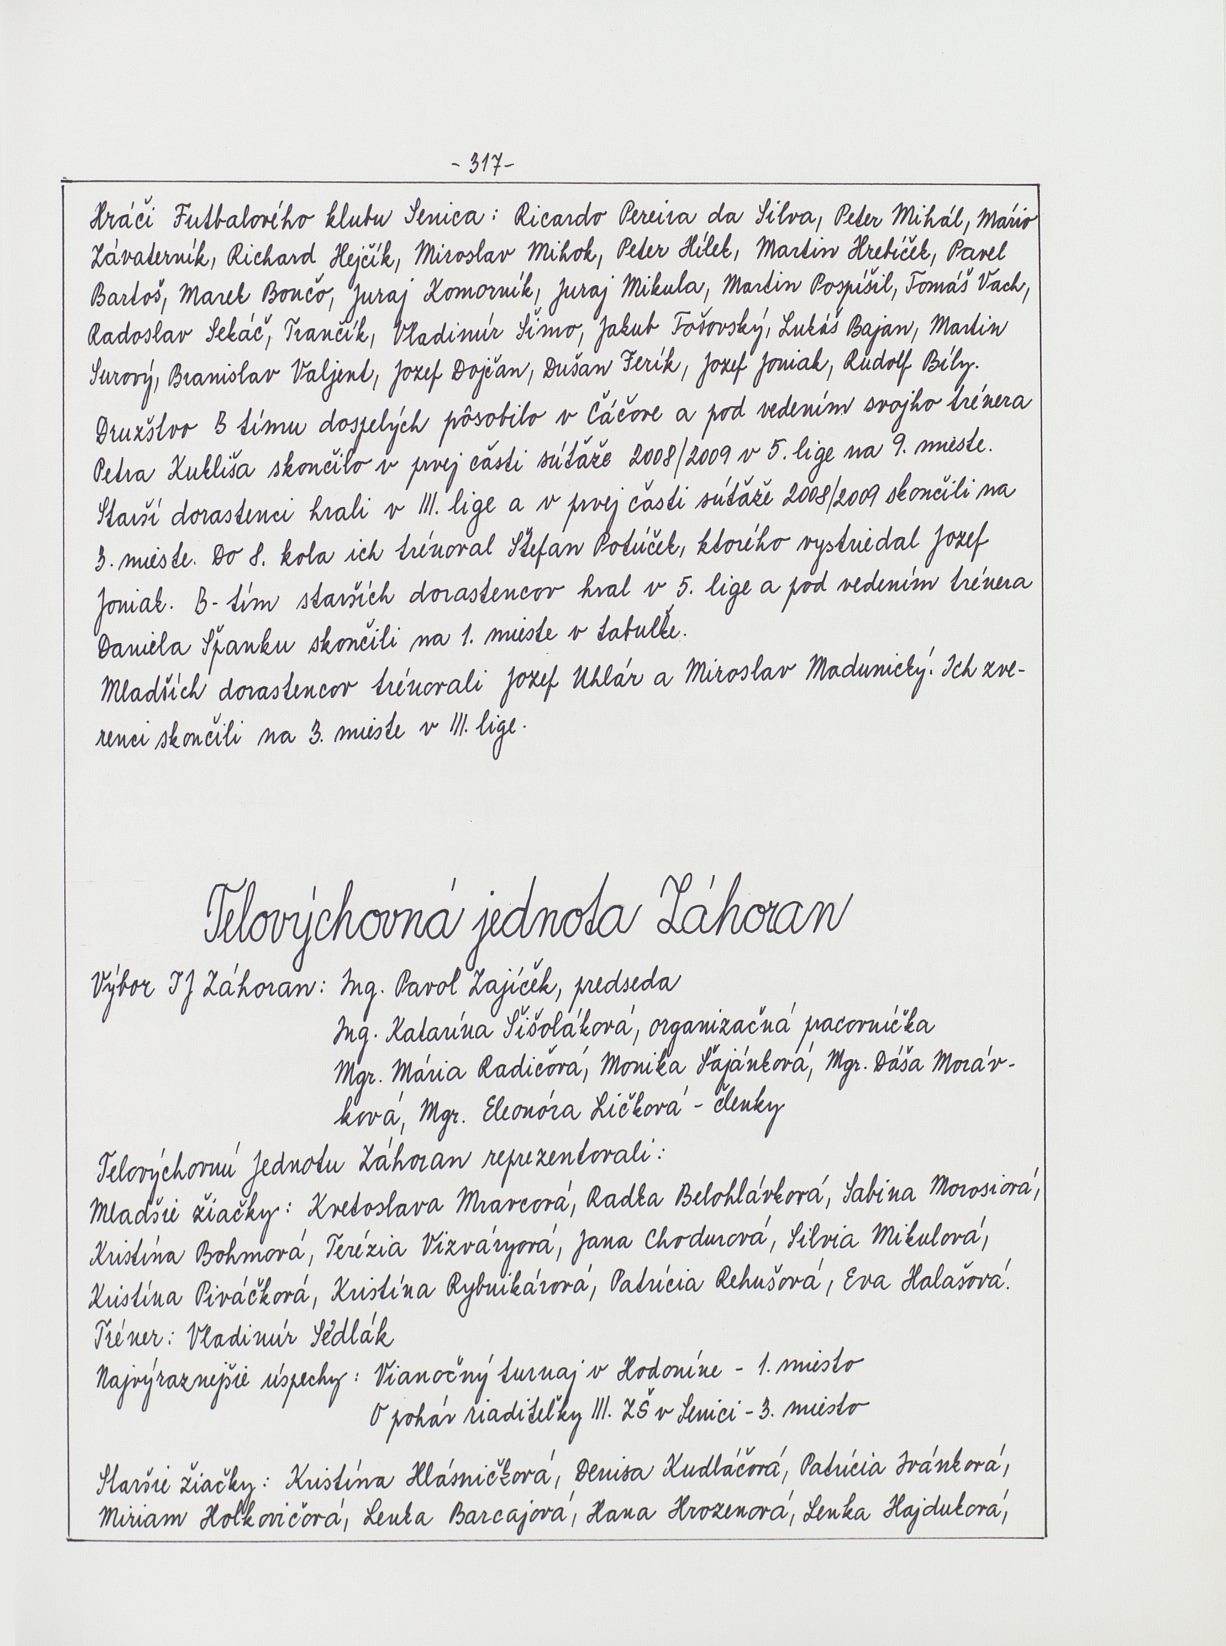 - 317 -
Hráči Futbalového klubu Senica: Ricardo Pereira da Silva, Peter Mihál, Mário
Závaterník, Richard Hejčík, Miroslav Mihok, Peter Hílek, Martin Hrebíček, Pavel
Bartoš, Marek Bončo, Juraj Komorník, Juraj Mikula, Martin Pospíšil, Tomáš Vach,
Radoslav Sekáč, Trančík, Vladimír Šimo, Jakub Fošovský, Lukáš Bajan, Martin
Surový, Branislav Valjent, Jozef Dojčan, Dušan Ferík, Jozef Joniak, Rudolf Bíly.
Družstvo B tímu dospelých pôsobilo v Čáčove a pod vedením svojho trénera
Petra Kukliša skončilo v prvej časti súťaže 2008/2009 v 5. lige na 9. mieste.
Starší dorastenci hrali v III. lige a v prvej časti súťaže 2008/2009 skončili na
3. mieste. Do 8. kola ich trénoval Štefan Potúček, ktorého vystriedal Jozef
Joniak. B-tím starších dorastencov hral v 5. lige a pod vedením trénera
Daniela Španku skončili na 1. mieste v tabuľke.
Mladších dorastencov trénovali Jozef Uhlár a Miroslav Madunický. Ich zve-
renci skončili na 3. mieste v III. lige.
Telovýchovná jednota Záhoran
Výbor TJ Záhoran: Ing. Pavol Zajíček, predseda
Ing. Katarína Šišoláková, organizačná pacorníčka
Mgr. Mária Radičová, Monika Šajánková, Mgr. Dáša Moráv-
ková, Mgr. Eleonóra Ličková - členky
Telovýchovnú jednotu Záhoran reprezentovali:
Mladšie žiačky: Kvetoslava Mravcová, Radka Belohlávková, Sabina Morosiová,
Kristína Bohmová, Terézia Vizváryová, Jana Chodurová, Silvia Mikulová,
Kristína Piváčková, Kristína Rybnikárová, Patrícia Rehušová, Eva Halašová.
Tréner: Vladimír Sedlák
Najvýraznejšie úspechy: Vianočný turnaj v Hodoníne - 1. miesto
O pohár riaditeľky III. ZŠ v Senici - 3. miesto
Staršie žiačky: Kristína Hlásničková, Denisa Kudláčová, Patrícia Ivánková,
Miriam Holkovičová, Lenka Barcajová, Hana Hrozenová, Lenka Hajduková,